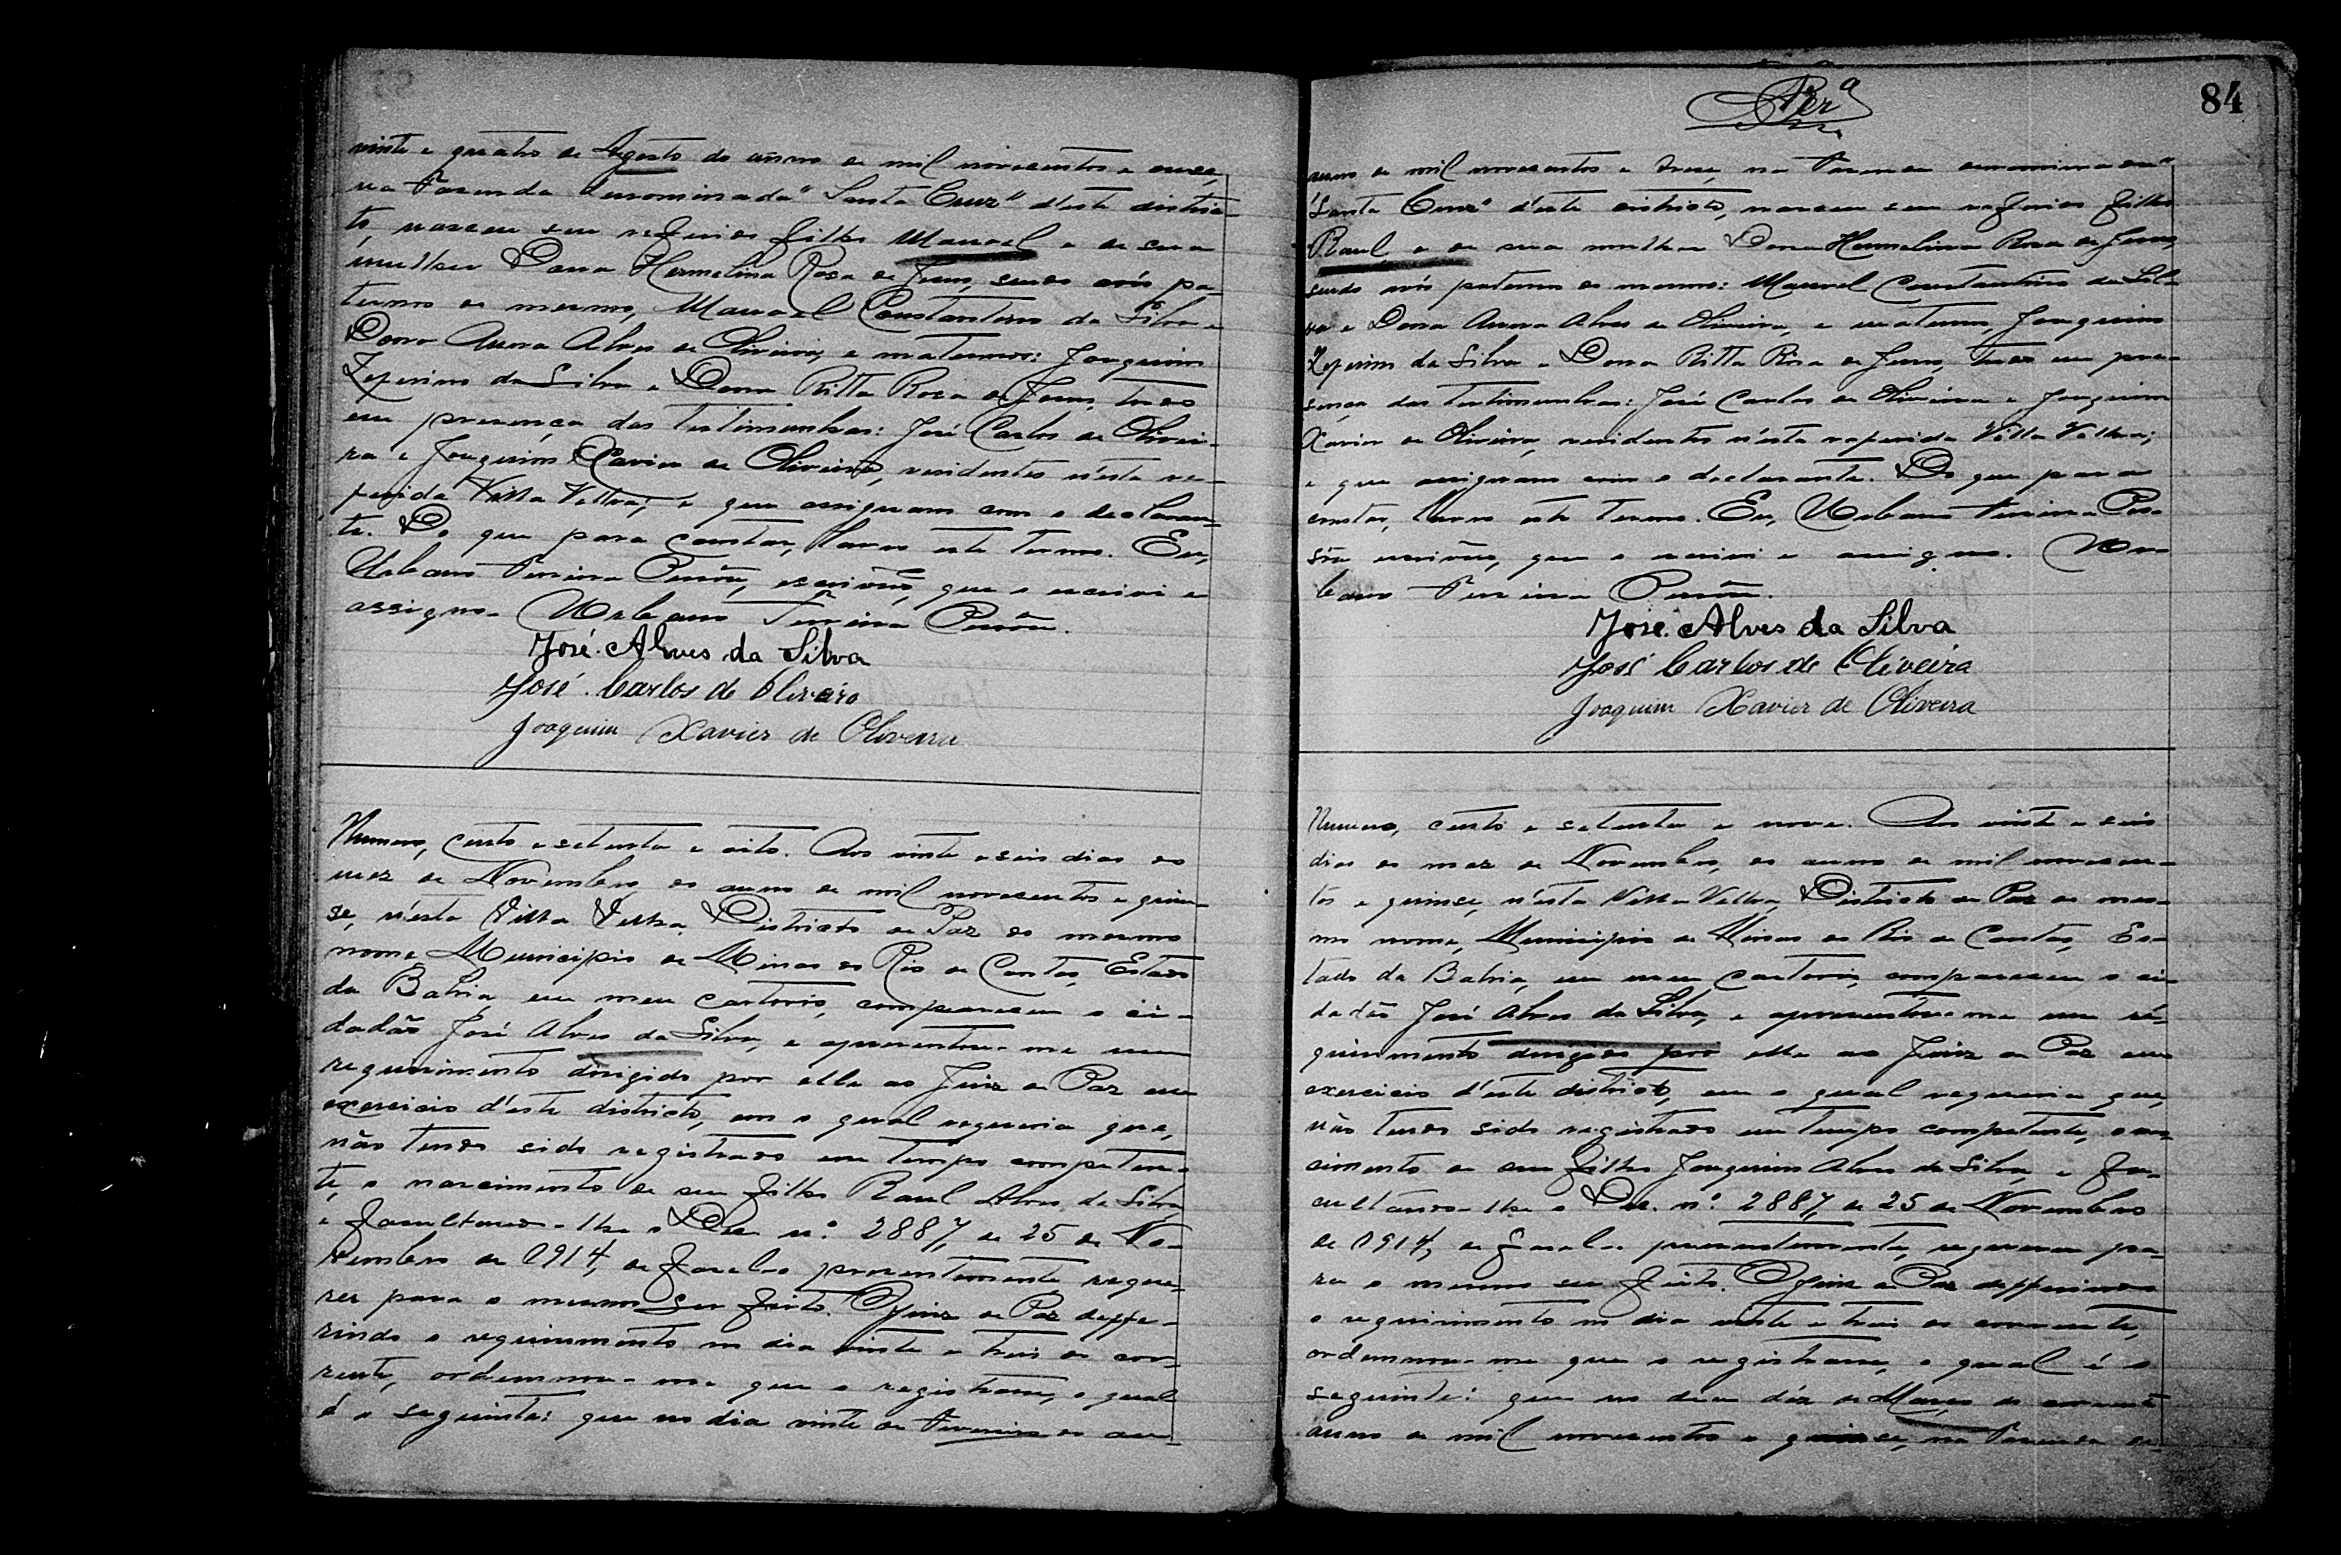 vinte e quatro de Agosto do anno de mil novecentos e onze,
na Fazenda denominada "Santa Cruz" d'este distric-
to, nasceu seu referido filho Manoel e de sua
mulher Dona Hermelina Rosa de Jesus, sendo avós pa-
ternos do mesmo, Manoel Constantino da Silva e
Dona Anna Alves de Oliveira, e maternos: Joaquim
Zeferino da Silva e Dona Ritta Rosa de Jesus, tudo
em presença das testimunhas: José Carlos de Olivei-
ra e Joaquim Xavier de Oliveira, residentes n'esta re-
ferida Villa Velha; e que assignam com o declaran-
te. Do que para constar, lavro este termo. Eu,
Urbano Ferreira escrivão, que o escrivi e
assigno. Urbano Ferreira
José Alves da Silva
José Carlos de Oliveira
Joaquim Xavier de Oliveira
Numero, cento e setenta e oito. Aos vinte e seis dias do
mez de Novembro do anno de mil novecentos e quin-
se, n'esta Villa Velha, Districto de Paz do mesmo
nome, Municipio de Minas do Rio de Contas, Estado
da Bahia, em meu cartorio, compareceu o ci-
dadão José Alves da Silva, e apresentou-me um
requerimento dirigido por elle ao Juiz de Paz em
exercicio d'este districto, em o qual requeria que,
não tendo sido registrado em tempo competen-
te, o nascimento de seu filho Raul Alves da Silva,
e facultando-lhe o Dec. n.º 2887, de 25 de No-
vembro de 1914, de fazel-o presentemente, reque-
rer para o mesmo ser feito. O Juiz de Paz deffe-
rindo o requerimento no dia vinte e treis do cor-
rente, ordennou-me que o registrasse, o qual
é o seguinte: que no dia vinte de Fevereiro do an-
84
anno de mil novecentos e treze, na Fazenda denominada
"Santa Cruz" d'este districto, nasceu seu referido filho
Raul e de sua mulher Dona Hermelina Rosa de Jesus,
sendo avós paternos do mesmo: Manoel Constantino da Sil-
va e Dona Anna Alves de Oliveira, e maternos, Joaquim
Zeferino da Silva e Dona Ritta Rosa de Jesus, tudo em pre-
sença das testimunhas: José Carlos de Oliveira e Joaquim
Xavier de Oliveira, residentes n'esta referida Villa Velha;
e que assignam com o declarante. Do que para
constar, lavro este termo. Eu, Urbano Ferreira
escrivão, que o escrivi e assigno. Ur-
bano Ferreira
José Alves da Silva
José Carlos de Oliveira
Joaquim Xavier de Oliveira
Numero, cento e setenta e nove. Aos vinte e seis
dias do mez de Novembro, do anno de mil novecen-
tos e quinse, n'esta Villa Velha, Districto de Paz do mes-
mo nome, Municipio de Minas do Rio de Contas, Es-
tado da Bahia, em meu cartorio, compareceu o ci-
dadão José Alves da Silva, e apresentou-me um re-
querimento dirigido por elle ao Juiz de Paz em
exercicio d'este districto, em o qual requeria que,
não tendo sido registrado em tempo competente, o nas-
cimento de seu filho Joaquim Alves da Silva, e fa-
cultando-lhe o Dec. n.º 2887, de 25 de Novembro
de 1914, de fazel-o presentemente, requerer pa-
ra o mesmo ser feito. O Juiz de Paz defferindo
o requerimento no dia vinte e treis do corrente,
ordennou-me que o registrasse, o qual é o
seguinte: que no dia déz de Março do corrente
anno de mil novecentos e quinse, na Fazenda de-